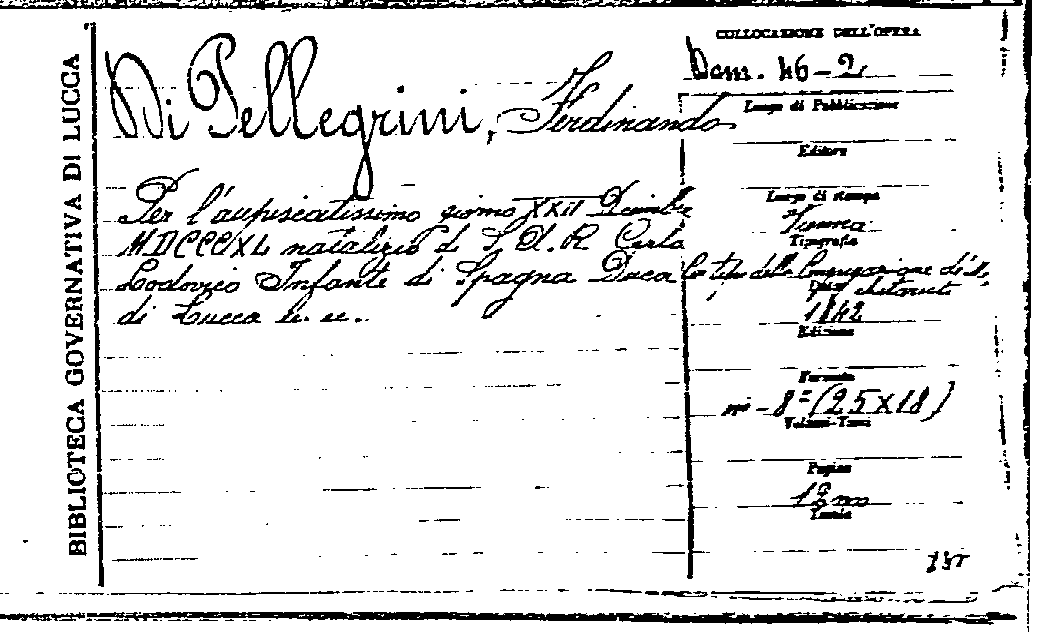 BIBLIOTECA GOVERNATIVA DI LUCCA
Di Pellegrini, Ferdinando
Per l'auspicatissimo giorno XXII Dicembre
MDCCCXL natalizio di S. A. R. Carlo
Lodovico Infante di Spagna Duca
di Lucca
COLLOCAZIONE DELL'OPERA
Dom. 46-2
Luogo di Pubblicazione
Editore
Luogo di stampa
Tipografia
Co' tipi della Congregazione
Data
1842
Edizione
Formato
in-8° (25X18)
Volumi-Tomi
Pagine
Tavole